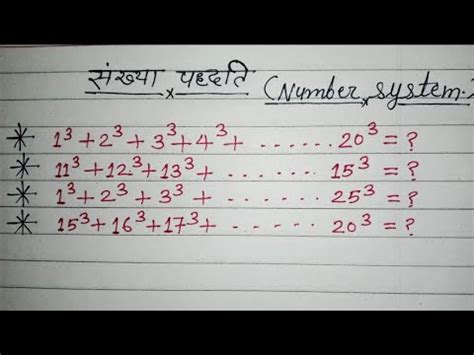 संख्या पद्धति (Number system.)
* 1³ + 2³ + 3³ + 4³ + . . . . . . 20³ = ?
* 11³ + 12³ + 13³ + . . . . . . 15³ = ?
* 1³ + 2³ + 3³ + . . . . . . 25³ = ?
* 15³ + 16³ + 17³ + . . . . . . 20³ = ?